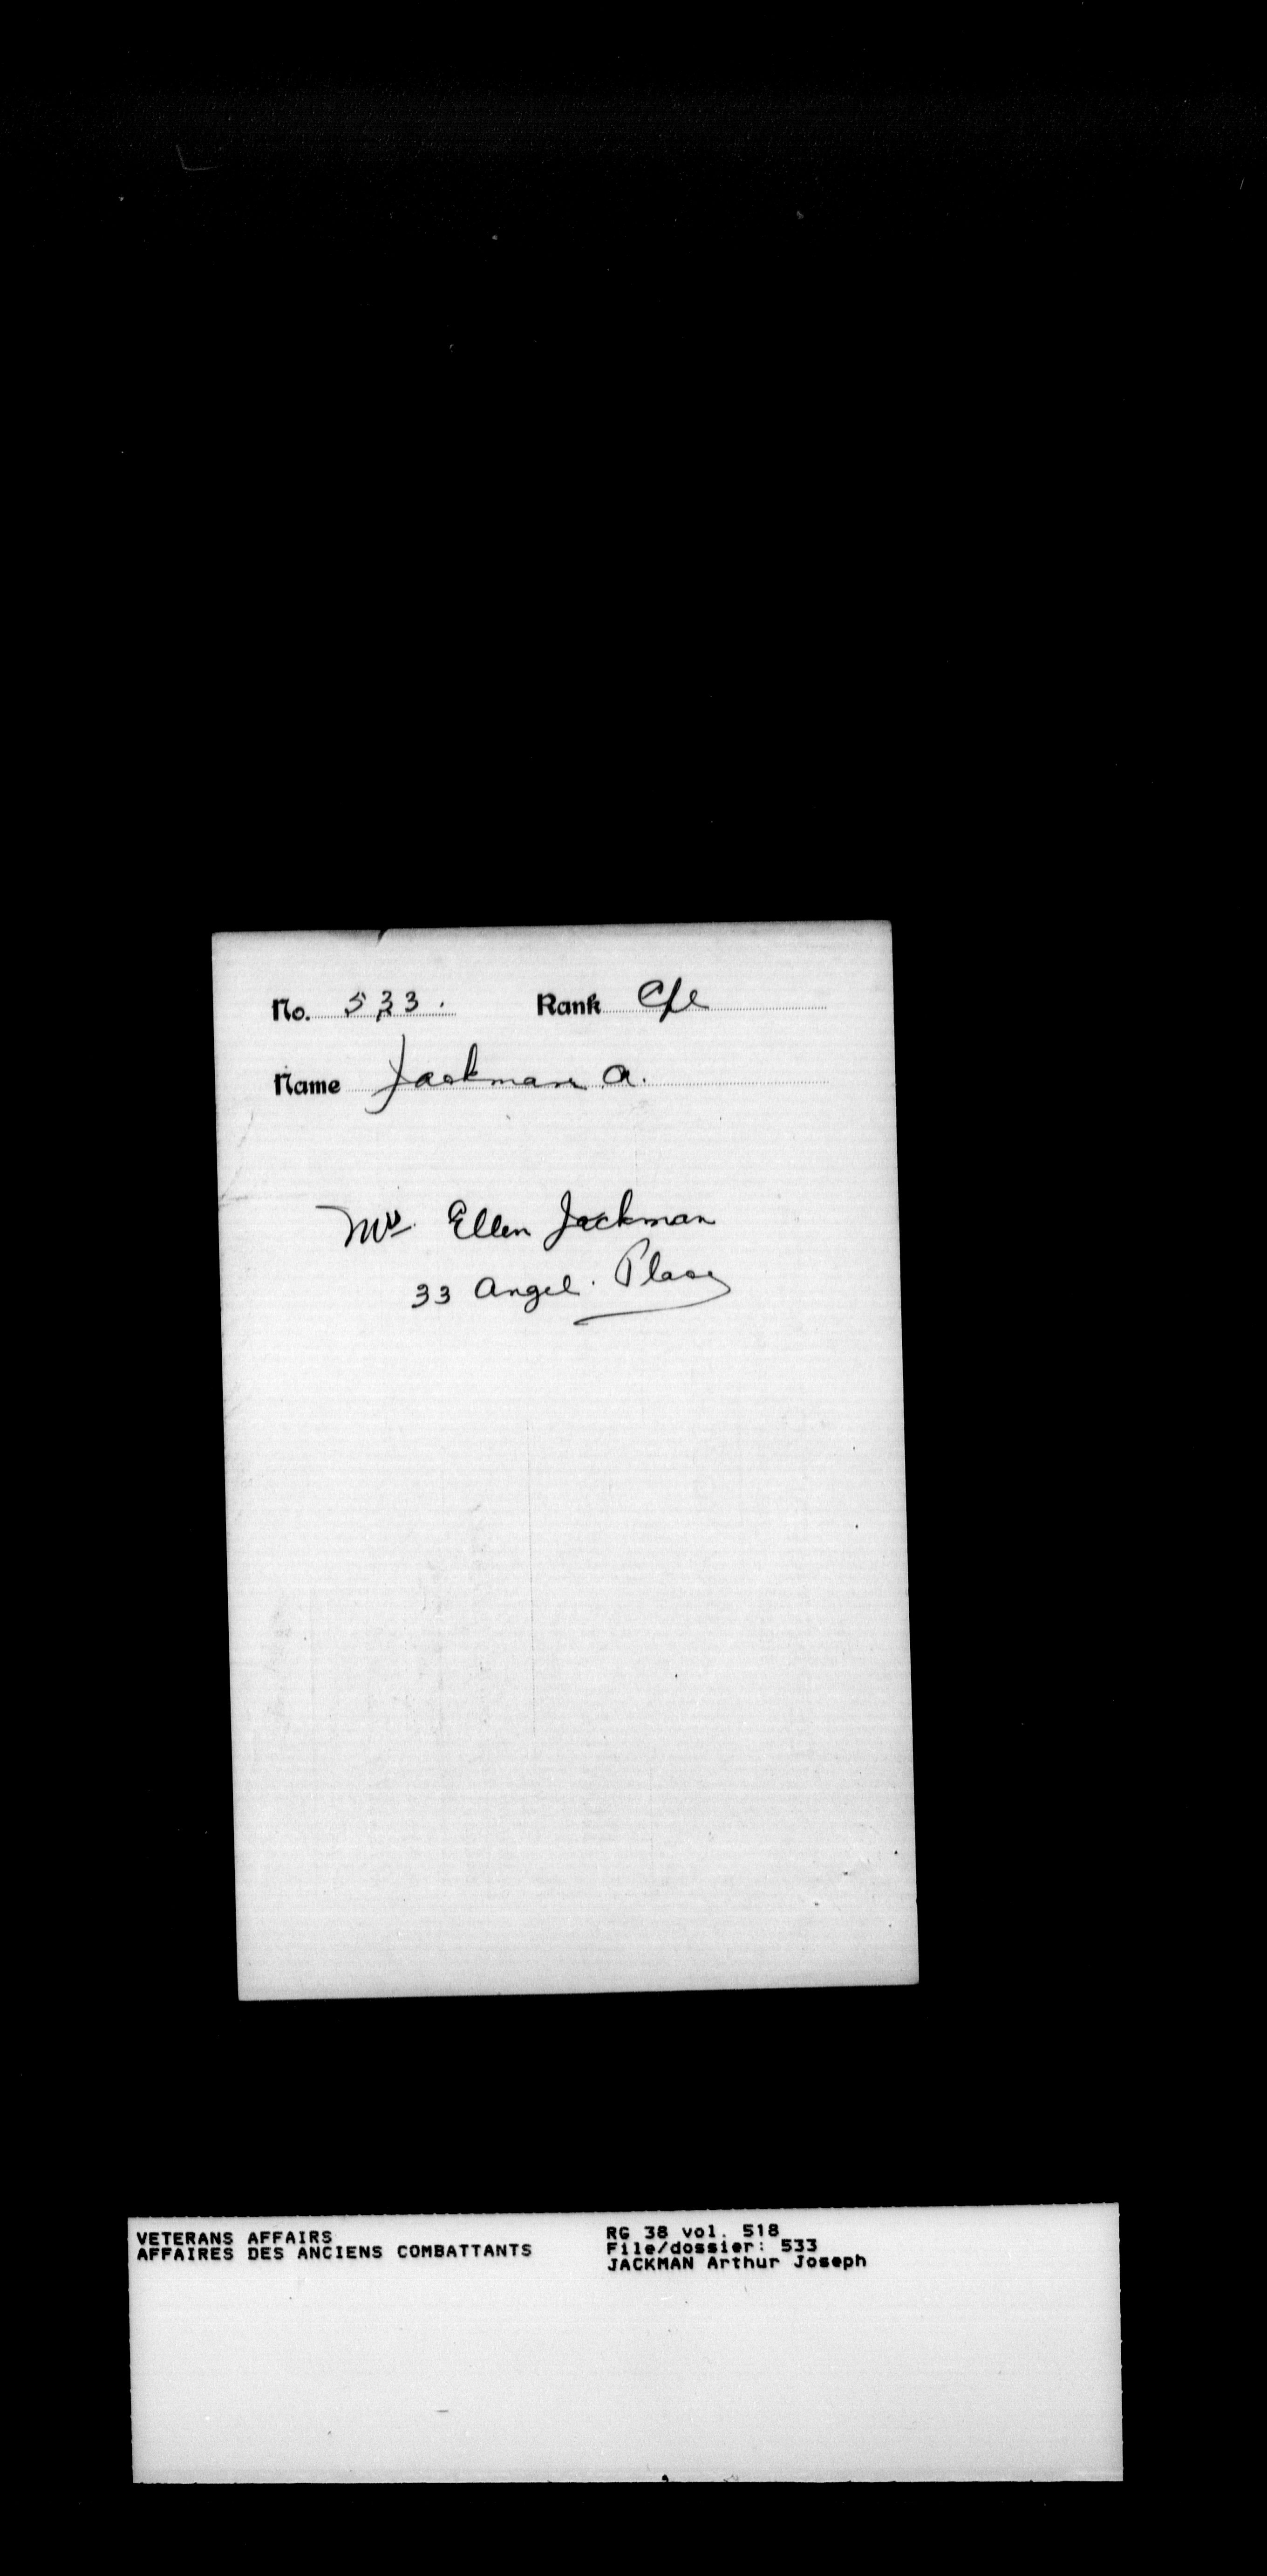 No. 533. Rank Cpl
Name Jackman A.
Mrs. Ellen Jackman
33 Angel. Place
VETERANS AFFAIRS
AFFAIRES DES ANCIENS COMBATTANTS
RG 38 vol. 518
File/dossier: 533
JACKMAN Arthur Joseph